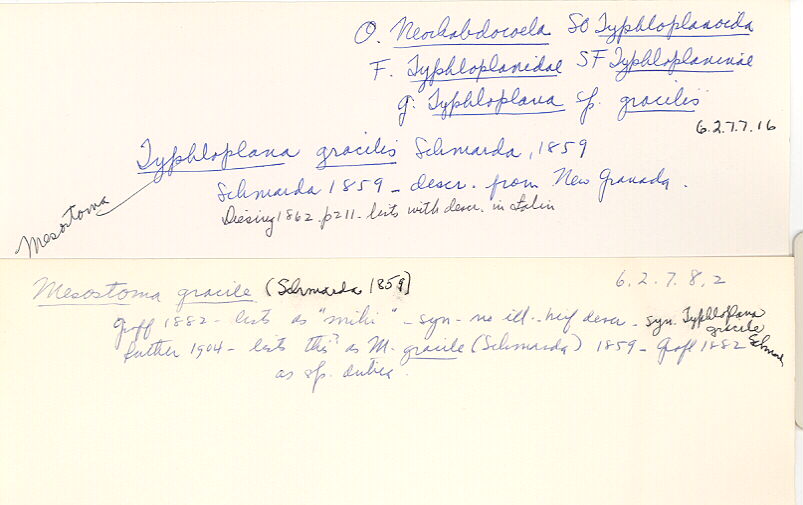 O. Neorhabdocoela SO Typhloplanoida
F. Typhloplanidae SF Typhloplaninae
g. Typhloplana sp. gracilis
6.2.7.7.16
Typhloplana gracilis Schmarda, 1859
Schmarda 1859 - descr. from New Granada.
Diesing 1862 p211 - lists with descr. in Latin
Mesostoma
Mesostoma gracile (Schmarda 1859)
6.2.7.8.2
Graff 1882 - lists as "mihi" - syn - no ill. - descr - syn. Typhloplana
gracile
Schmarda
Luther 1904 - lists this as M. gracile (Schmarda) 1859 - Graff 1882
as sp. dubia.